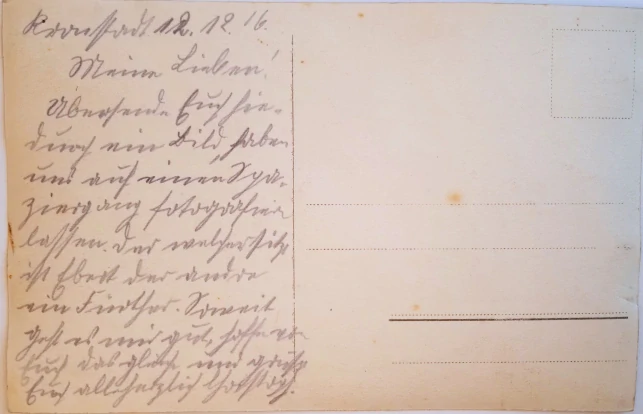 Kronstadt 12.12.16.
Meine Lieben!
Übersende Euch hie-
durch ein Bild, haben
uns auf einen Spa-
ziergang fotografieren
lassen. Der welcher sitzt
ist Ebert der andre
ein Further. Soweit
geht es mir gut, hoffe von
Euch das gleiche und grüße
Euch allherzlich